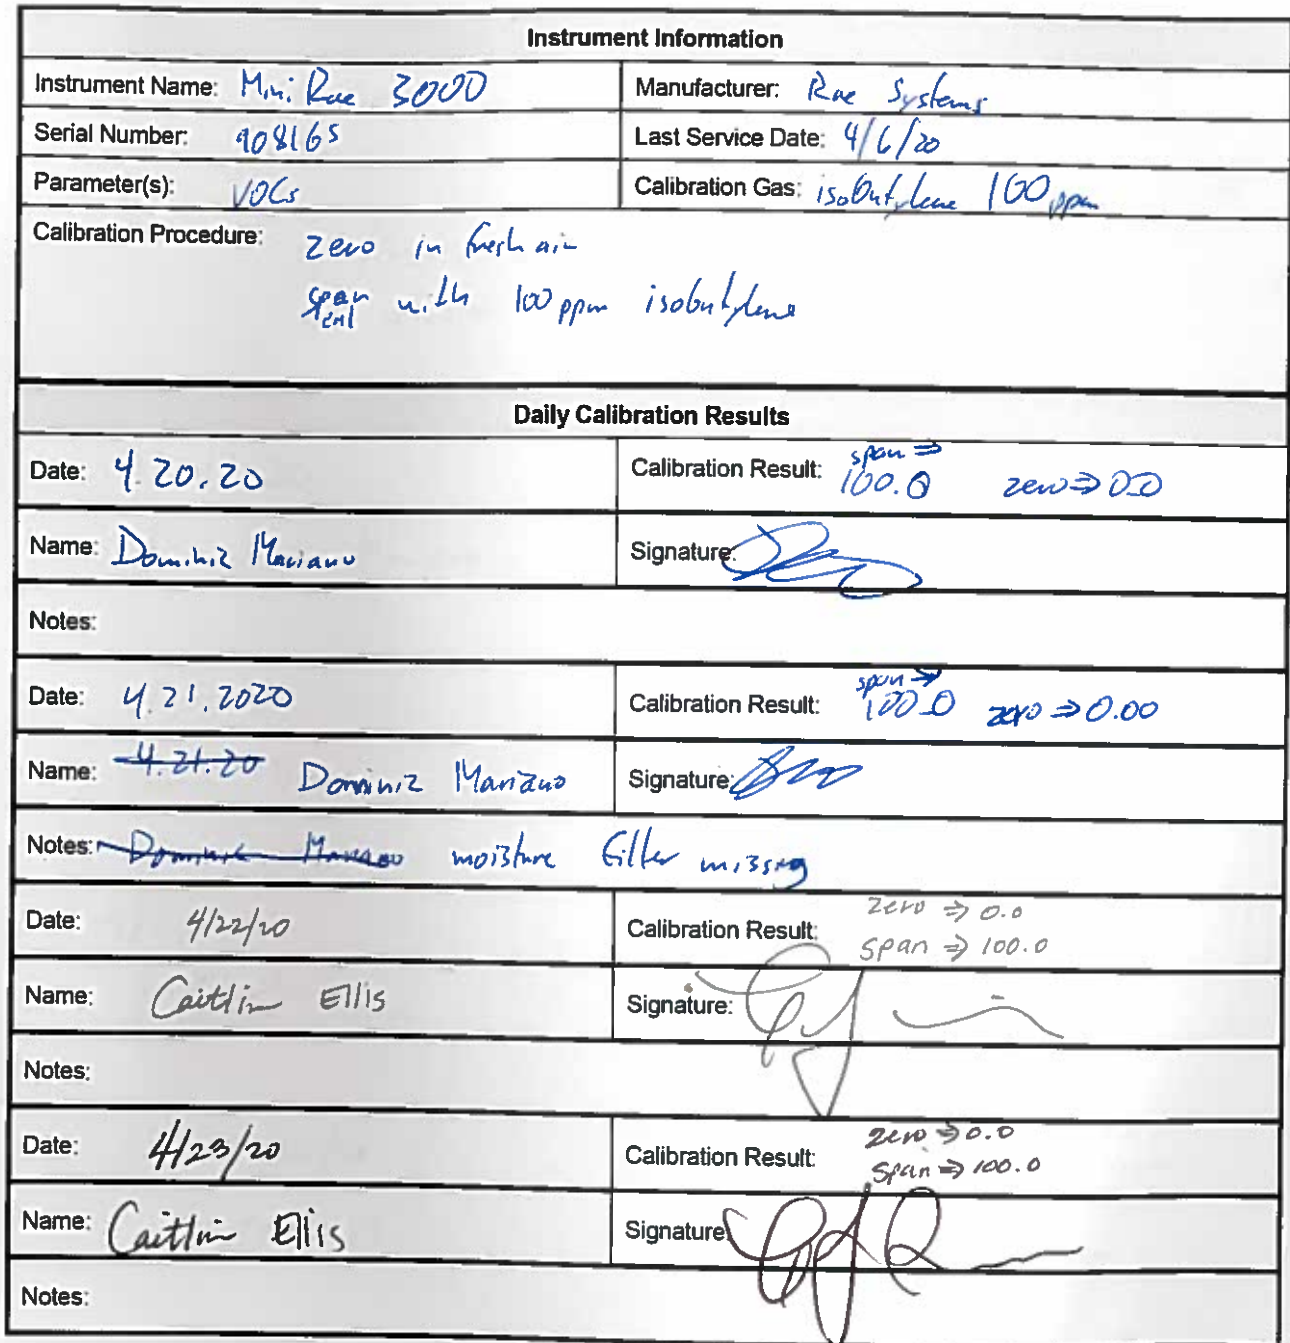 Instrument Information
Instrument Name: Mini Rae 3000
Manufacturer: Rae Systems
Serial Number: 908165
Last Service Date: 4/6/20
Parameter(s): VOCs
Calibration Gas: isobutylene 100 ppm
Calibration Procedure: zero in fresh air
span with 100 ppm isobutylene
Daily Calibration Results
Date: 4.20.20
Calibration Result: span ⇒ 100.0 zero ⇒ 0.0
Name: Dominic Mariano
Signature:
Notes:
Date: 4.21.2020
Calibration Result: span ⇒ 100.0 zero ⇒ 0.00
Name: 4.21.20 Dominic Mariano
Signature:
Notes: Dominic Mariano moisture filter missing
Date: 4/22/20
Calibration Result: zero ⇒ 0.0
span ⇒ 100.0
Name: Caitlin Ellis
Signature:
Notes:
Date: 4/23/20
Calibration Result: zero ⇒ 0.0
span ⇒ 100.0
Name: Caitlin Ellis
Signature:
Notes: